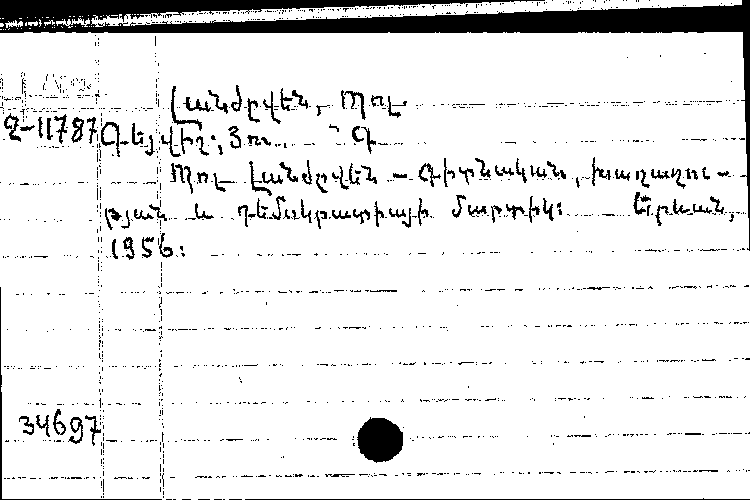 Լանժըվեն, Պոլ
Զ-11787 Գեյվիշ, Յու. Գ
Պոլ Լանժըվեն – Գիտնական, խաղաղու-
թյան և դեմոկրատիայի մարտիկ: Երևան,
1956:
34697